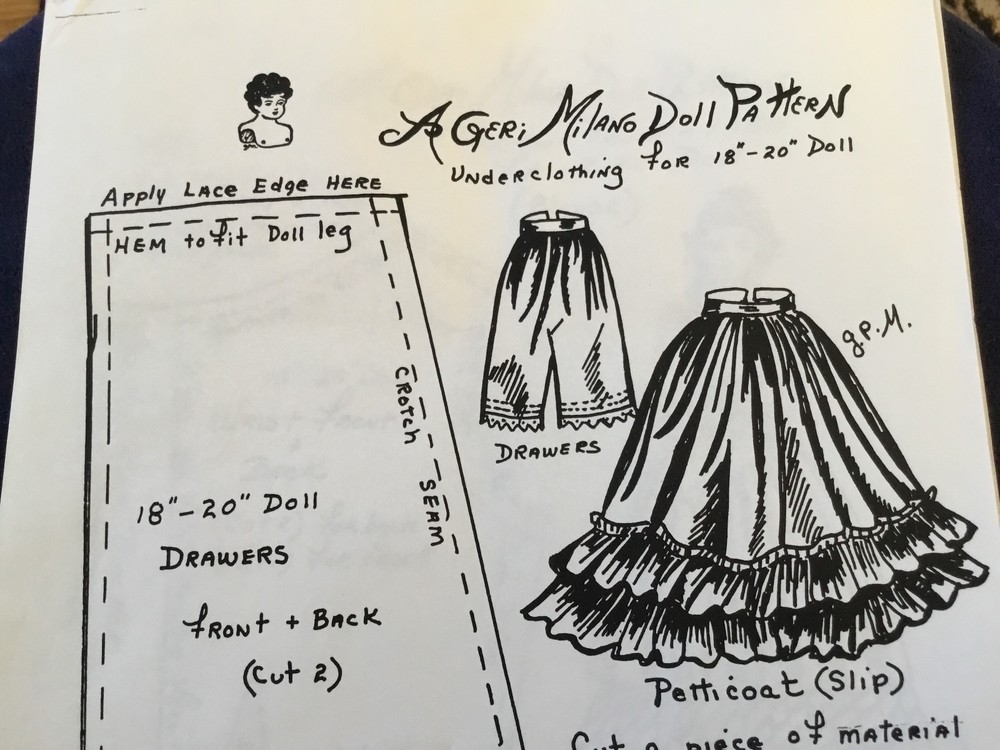 A Geri Milano Doll Pattern
Underclothing for 18"-20" Doll
Apply Lace Edge HERE
HEM to fit Doll leg
CROTCH SEAM
18"-20" Doll
DRAWERS
fRONt + BACK
(Cut 2)
DRAWERS
g.P.M.
Petticoat (Slip)
Cut a piece of material